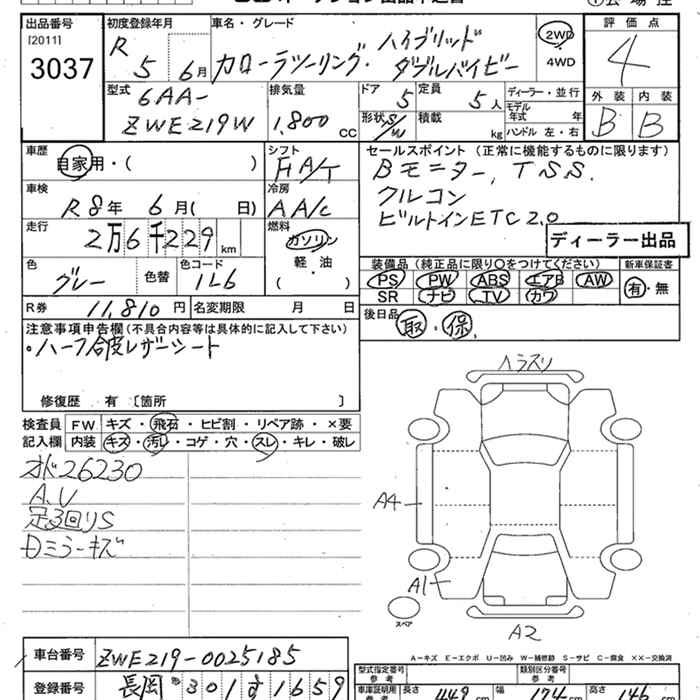 出品番号 初度登録年月 車名・グレード 2WD 評価点
[2011] R ハイブリッド 4WD 4
3037 5 6月 カローラツーリング・ダブルバイビー
型式 6AA- 排気量 ドア 5 定員 5人 ディーラー・並行 外装 内装
ZWE219W 1,800 CC 形状 S/W 積載 kg モデル年式 年 B B
ハンドル 左・右
車歴 自家用・( ) シフト FA/T セールスポイント (正常に機能するものに限ります)
車検 R8年 6月( 日) 冷房 AA/C Bモニター, TSS.
走行 2万6千229km 燃料 ガソリン クルコン
軽・油 ビルトインETC2.0
( ) ディーラー出品
色 グレー 色替 色コード 1L6 装備品 (純正品に限り○をつけてください) 新車保証書
PS PW ABS エアB AW 有・無
R券 11,810円 名変期限 月 日 SR ナビ TV カワ
注意事項申告欄(不具合内容等は具体的に記入して下さい) 後日品 取・保
・ハーフ合皮レザーシート
修復歴 有 〔箇所 〕
検査員 FW キズ・飛石・ヒビ割・リペア跡・×要
記入欄 内装 キズ・汚レ・コゲ・穴・スレ・キレ・破レ
ヘラズリ
26230
A.V
Dミラーキズ
A4
A1
スペア
A2
A=キズ E=エクボ U=凹み W=補修跡 S=サビ C=腐食 ××=交換済
車台番号 ZWE219-0025185
登録番号 長岡 301 す 1659
型式指定番号 参考 類別区分番号 参考
車庫証明用 参考 長さ 449 cm 幅 174 cm 高さ 146 cm